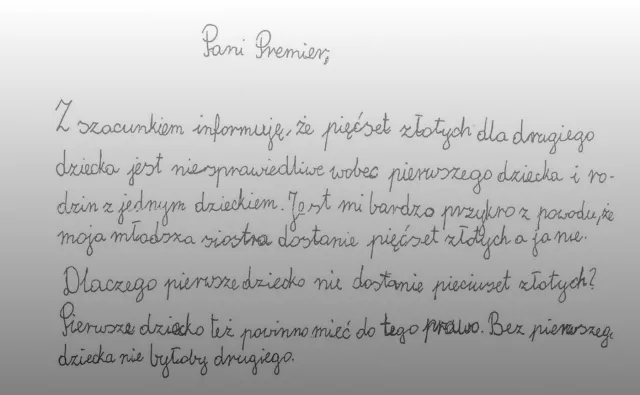 Pani Premier,
Z szacunkiem informuję, że pięćset złotych dla drugiego
dziecka jest niesprawiedliwe wobec pierwszego dziecka i ro-
dzin z jednym dzieckiem. Jest mi bardzo przykro z powodu, że
moja młodsza siostra dostanie pięćset złotych a ja nie.
Dlaczego pierwsze dziecko nie dostanie pieciuset złotych?
Pierwsze dziecko też powinno mieć do tego prawo. Bez pierwszeg
dziecka nie byłoby drugiego.